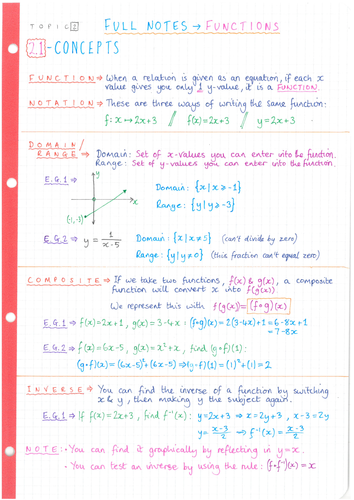 TOPIC 2
FULL NOTES → FUNCTIONS
2.1 - CONCEPTS
FUNCTION ⇒ When a relation is given as an equation, if each x
value gives you only 1 y-value, it is a FUNCTION.
NOTATION ⇒ These are three ways of writing the same function:
f: x ↦ 2x+3 // f(x) = 2x+3 // y = 2x+3
DOMAIN/
RANGE ⇒ Domain: Set of x-values you can enter into the function.
Range: Set of y-values you can enter into the function.
E.G.1 ⇒ y x (-1,-3)
Domain: {x | x ≥ -1}
Range: {y | y ≥ -3}
E.G.2 ⇒ y = 1/(x-5) Domain: {x | x ≠ 5} (can't divide by zero)
Range: {y | y ≠ 0} (this fraction can't equal zero)
COMPOSITE ⇒ If we take two functions, f(x) & g(x), a composite
function will convert x into f(g(x))
We represent this with f(g(x)) = (f∘g)(x)
E.G.1 ⇒ f(x) = 2x+1, g(x) = 3-4x : (f∘g)(x) = 2(3-4x)+1 = 6-8x+1
= 7-8x
E.G.2 ⇒ f(x) = 6x-5, g(x) = x²+x, find (g∘f)(1):
(g∘f)(x) = (6x-5)²+(6x-5) ⇒ (g∘f)(1) = (1)²+(1) = 2
INVERSE ⇒ You can find the inverse of a function by switching
x & y, then making y the subject again.
E.G.1 ⇒ If f(x) = 2x+3, find f⁻¹(x): y = 2x+3 ⇒ x = 2y+3, x-3 = 2y
y = (x-3)/2 ⇒ f⁻¹(x) = (x-3)/2
NOTE: • You can find it graphically by reflecting in y=x.
• You can test an inverse by using the rule: (f∘f⁻¹)(x) = x